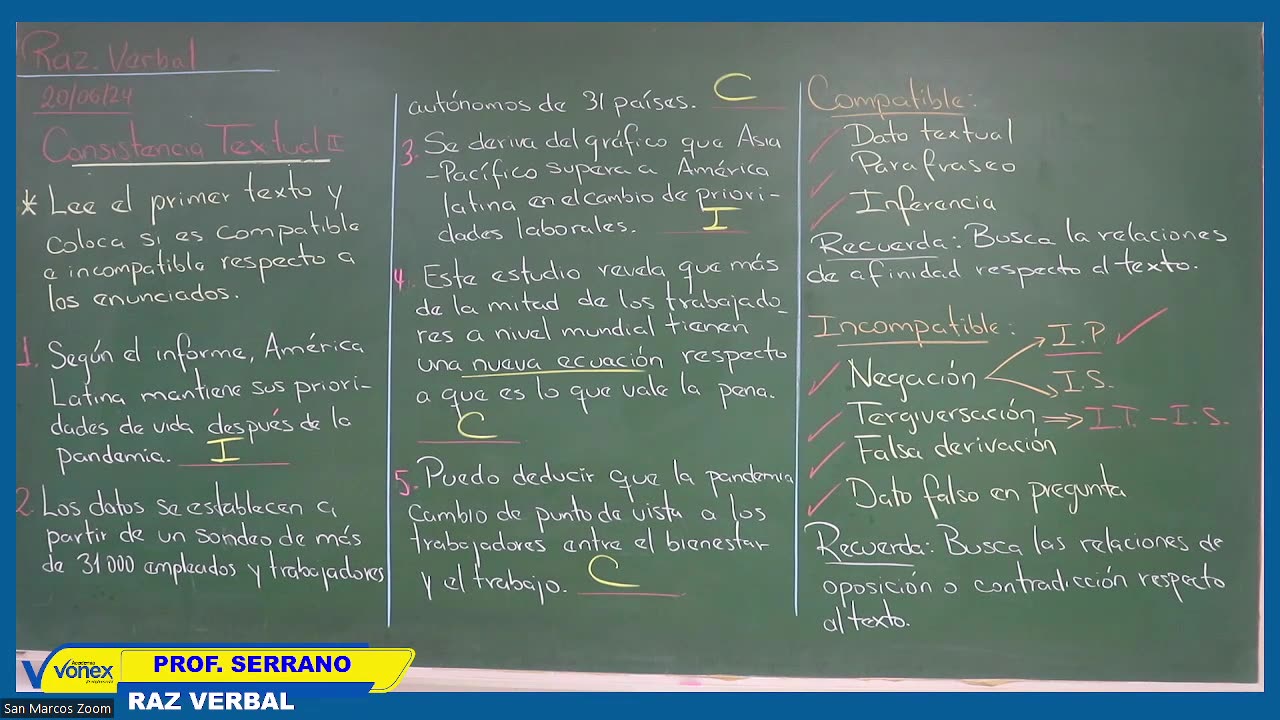 Raz. Verbal
20/06/24
Consistencia Textual II
* Lee el primer texto y
coloca si es compatible
e incompatible respecto a
los enunciados.
1. Según el informe, América
Latina mantiene sus priori-
dades de vida después de la
pandemia. I
2. Los datos se establecen a
partir de un sondeo de más
de 31000 empleados y trabajadores
autónomos de 31 países. C
3. Se deriva del gráfico que Asia
-Pacífico supera a América
latina en el cambio de priori-
dades laborales. I
4. Este estudio revela que más
de la mitad de los trabajado-
res a nivel mundial tienen
una nueva ecuación respecto
a que es lo que vale la pena.
C
5. Puedo deducir que la pandemia
cambio de punto de vista a los
trabajadores entre el bienestar
y el trabajo. C
Compatible:
Dato textual
Parafraseo
Inferencia
Recuerda: Busca la relaciones
de afinidad respecto al texto.
Incompatible:
I.P.
Negación
I.S.
Tergiversación => I.T. - I.S.
Falsa derivación
Dato falso en pregunta
Recuerda: Busca las relaciones de
oposición o contradicción respecto
al texto.
Academia
Vonex
PROF. SERRANO
RAZ VERBAL
San Marcos Zoom